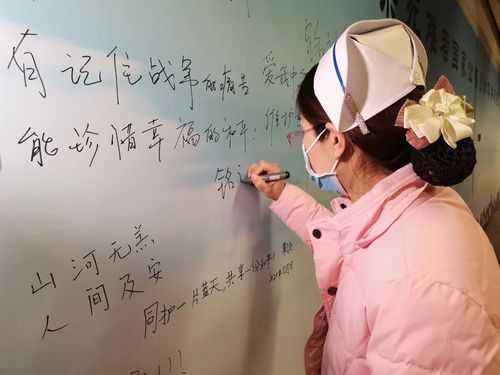 有记住战争的痛苦 爱我中
能珍惜幸福的和平! 维护
铭
山河无恙
人间及安
同护一片蓝天,共享一份和平!
!!!